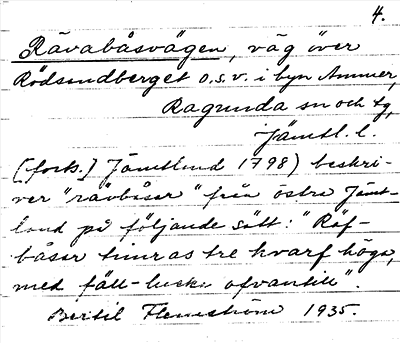 4.
Rävabåsvägen, väg över
Rödsundberget o.s.v. i byn Ammer,
Ragunda sn och tg,
Jämtl. l.
[forts.] Jämtland 1798) beskri-
ver "rävbåsar" från östra Jämt-
land på följande sätt: "Räf-
båsar timras tre hvarf höga,
med fäll-lucka ofvantill".
Bertil Flemström 1935.